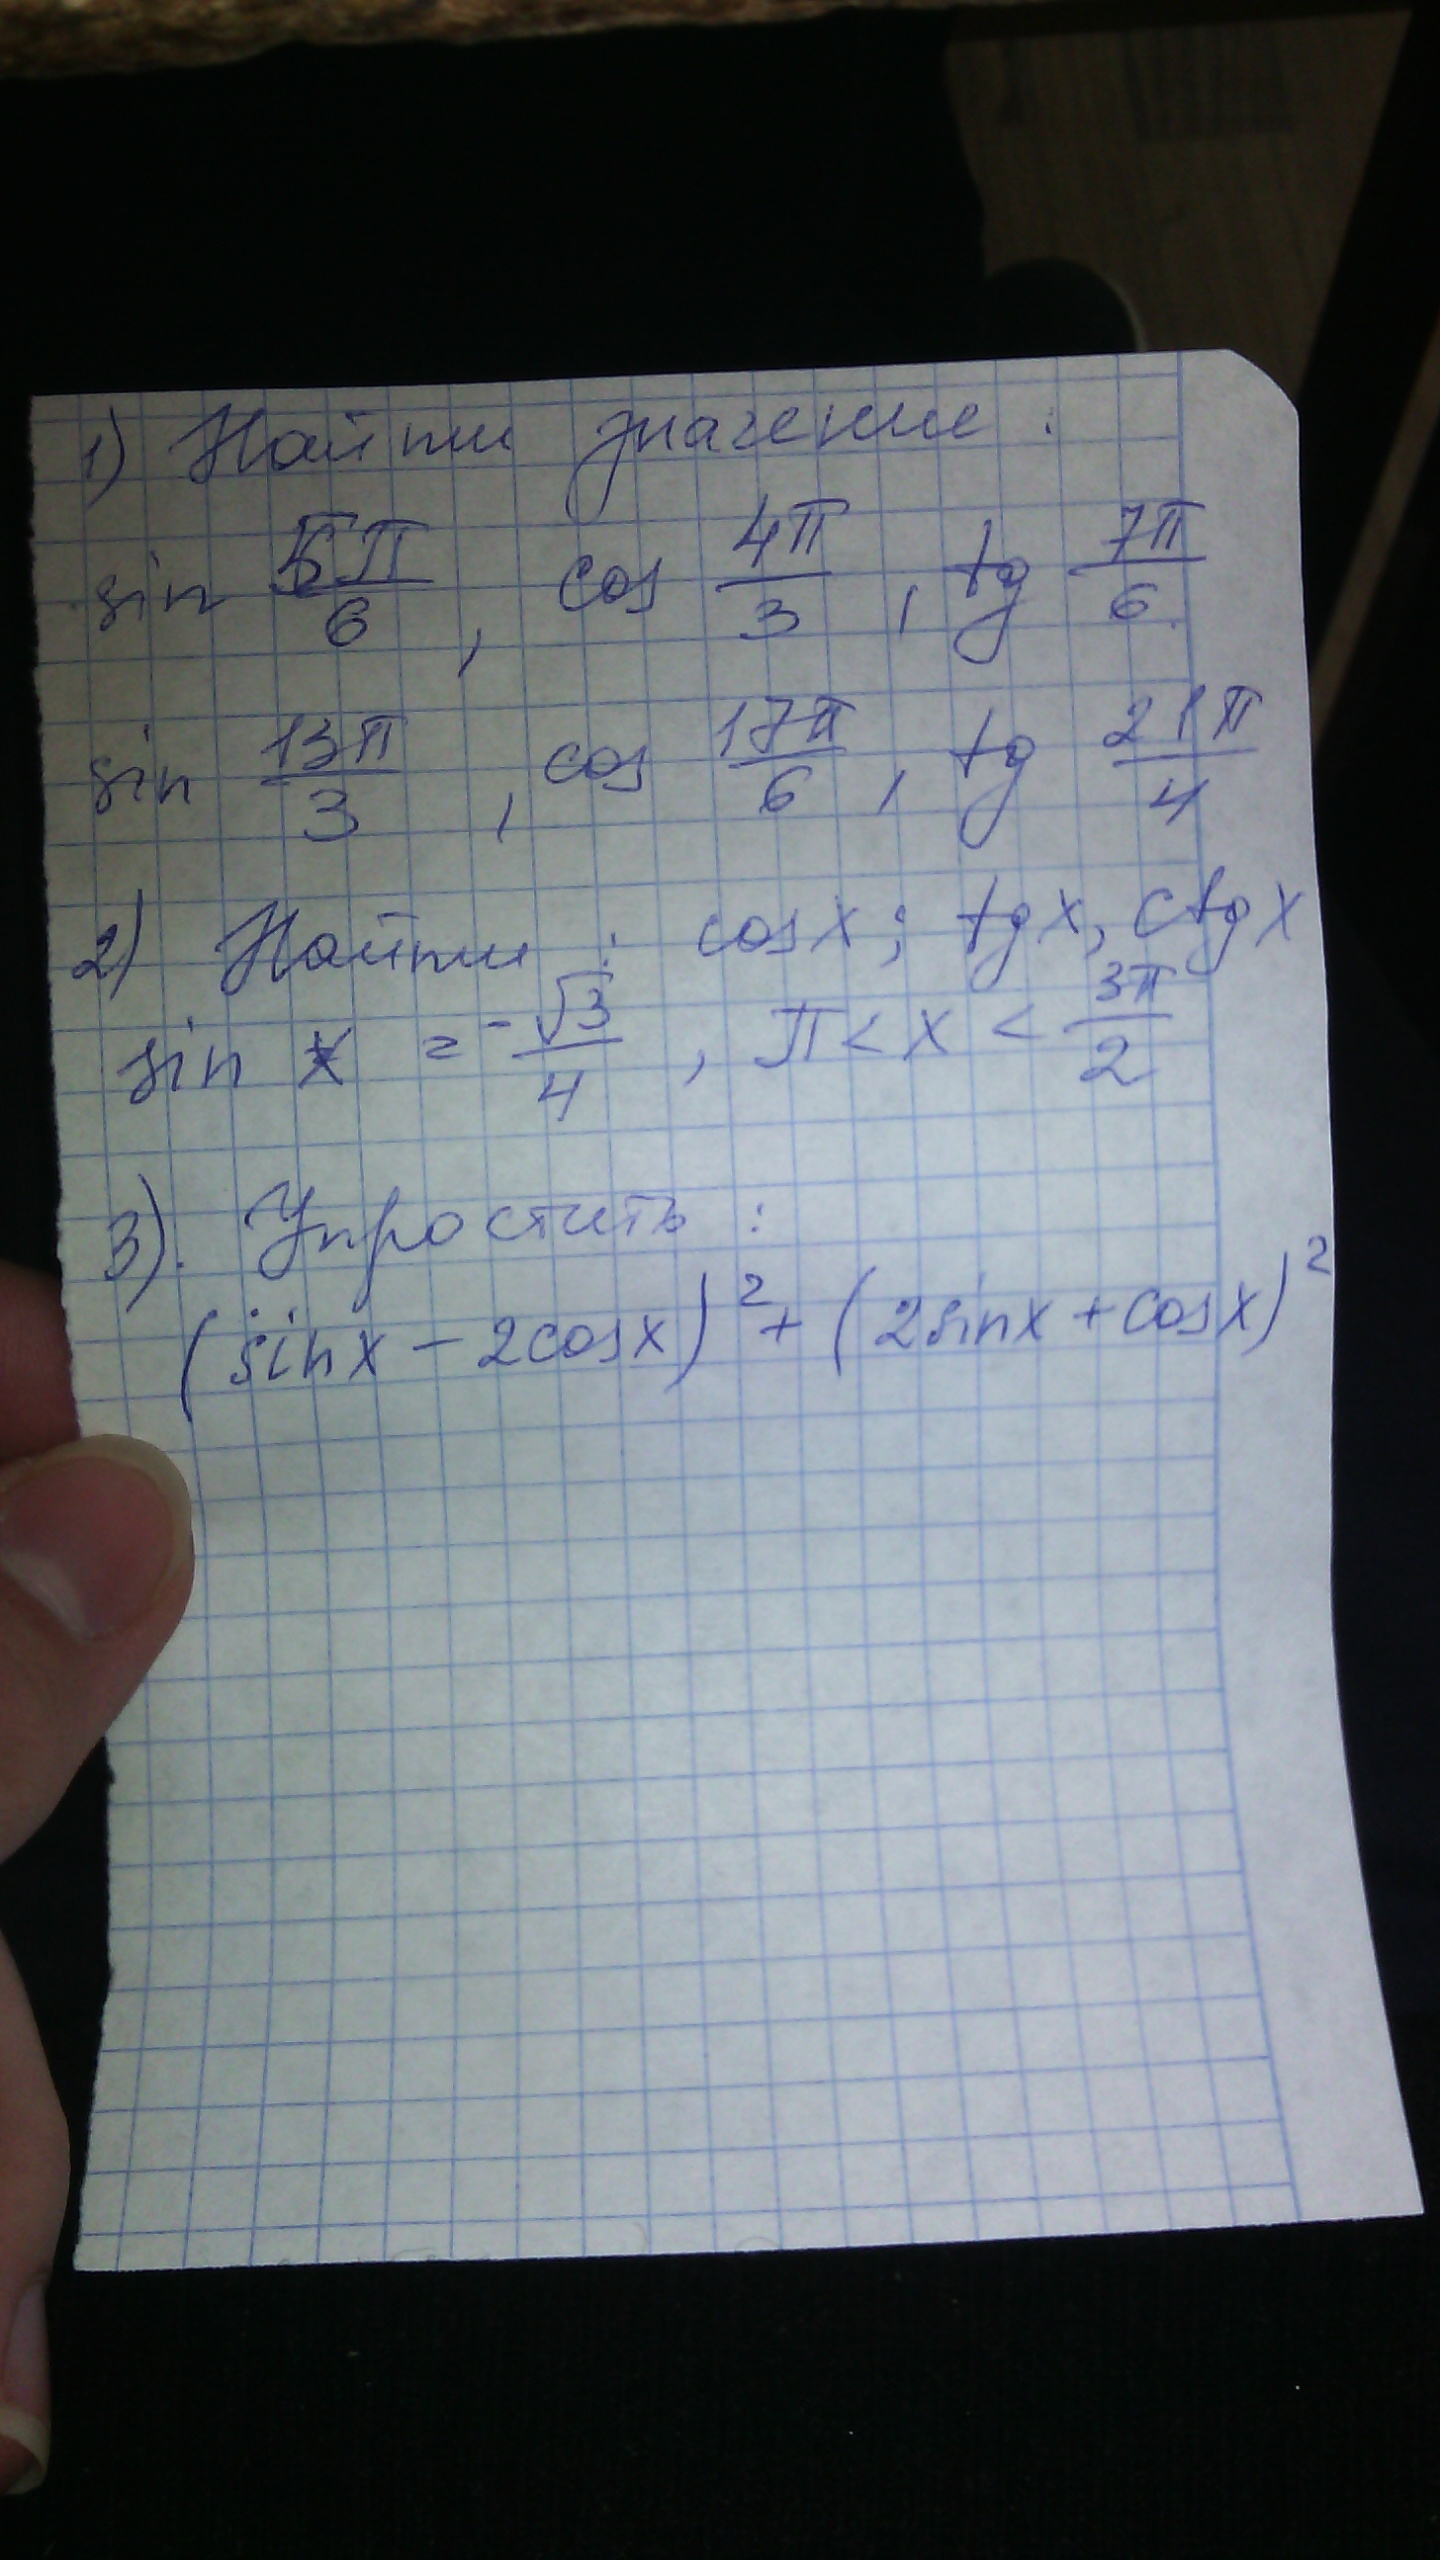 1) Найти значение :
sin 5π/6 , cos 4π/3 , tg 7π/6.
sin 13π/3 , cos 17π/6 , tg 21π/4
2) Найти : cosx; tgx, ctgx
sin x = -√3/4 , π < x < 3π/2
3). Упростить :
(sinx - 2cosx)² + (2sinx + cosx)²